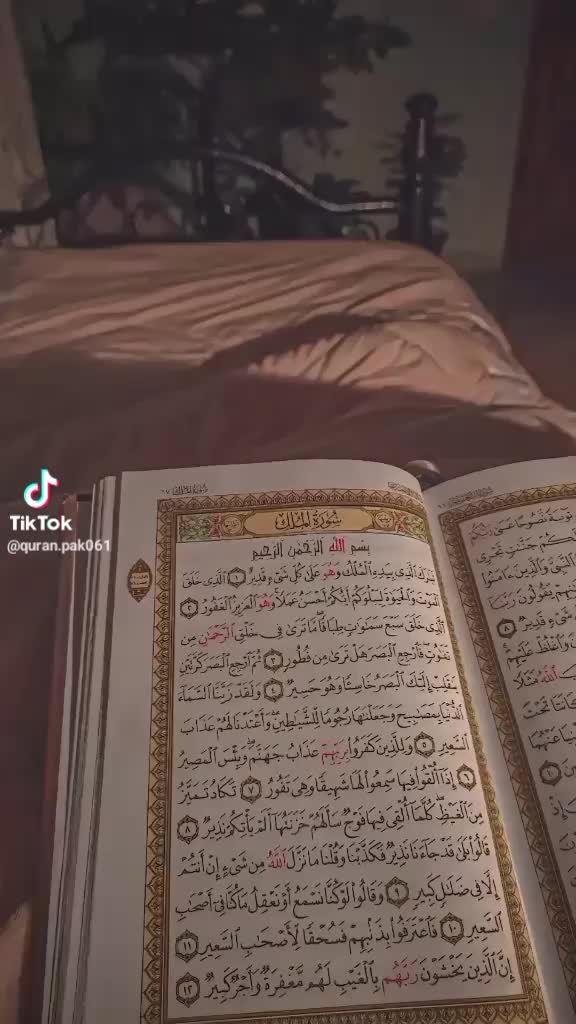 سُورَةُ المُلْكِ
بِسْمِ اللَّهِ الرَّحْمَٰنِ الرَّحِيمِ
تَبَٰرَكَ الَّذِي بِيَدِهِ الْمُلْكُ وَهُوَ عَلَىٰ كُلِّ شَيْءٍ قَدِيرٌ ١ الَّذِي خَلَقَ
الْمَوْتَ وَالْحَيَوٰةَ لِيَبْلُوَكُمْ أَيُّكُمْ أَحْسَنُ عَمَلًا وَهُوَ الْعَزِيزُ الْغَفُورُ ٢
الَّذِي خَلَقَ سَبْعَ سَمَٰوَٰتٍ طِبَاقًا مَّا تَرَىٰ فِي خَلْقِ الرَّحْمَٰنِ مِن
تَفَٰوُتٍ فَارْجِعِ الْبَصَرَ هَلْ تَرَىٰ مِن فُطُورٍ ٣ ثُمَّ ارْجِعِ الْبَصَرَ كَرَّتَيْنِ
يَنقَلِبْ إِلَيْكَ الْبَصَرُ خَاسِئًا وَهُوَ حَسِيرٌ ٤ وَلَقَدْ زَيَّنَّا السَّمَآءَ
الدُّنْيَا بِمَصَٰبِيحَ وَجَعَلْنَٰهَا رُجُومًا لِّلشَّيَٰطِينِ وَأَعْتَدْنَا لَهُمْ عَذَابَ
السَّعِيرِ ٥ وَلِلَّذِينَ كَفَرُوا بِرَبِّهِمْ عَذَابُ جَهَنَّمَ وَبِئْسَ الْمَصِيرُ
٦ إِذَآ أُلْقُوا فِيهَا سَمِعُوا لَهَا شَهِيقًا وَهِيَ تَفُورُ ٧ تَكَادُ تَمَيَّزُ
مِنَ الْغَيْظِ كُلَّمَآ أُلْقِيَ فِيهَا فَوْجٌ سَأَلَهُمْ خَزَنَتُهَآ أَلَمْ يَأْتِكُمْ نَذِيرٌ ٨
قَالُوا بَلَىٰ قَدْ جَآءَنَا نَذِيرٌ فَكَذَّبْنَا وَقُلْنَا مَا نَزَّلَ اللَّهُ مِن شَيْءٍ إِنْ أَنتُمْ
إِلَّا فِي ضَلَٰلٍ كَبِيرٍ ٩ وَقَالُوا لَوْ كُنَّا نَسْمَعُ أَوْ نَعْقِلُ مَا كُنَّا فِيٓ أَصْحَٰبِ
السَّعِيرِ ١٠ فَاعْتَرَفُوا بِذَنۢبِهِمْ فَسُحْقًا لِّأَصْحَٰبِ السَّعِيرِ ١١
إِنَّ الَّذِينَ يَخْشَوْنَ رَبَّهُم بِالْغَيْبِ لَهُم مَّغْفِرَةٌ وَأَجْرٌ كَبِيرٌ ١٢
TikTok
@quran.pak061